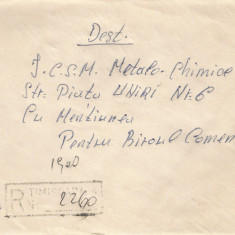 Dest.
I.C.S.M. Metalo-Chimice
Str. Piata UNIRI Nr. 6
Cu Mentiunea
Pentru Biroul Comer
R TIMISOARA
Nº 2260